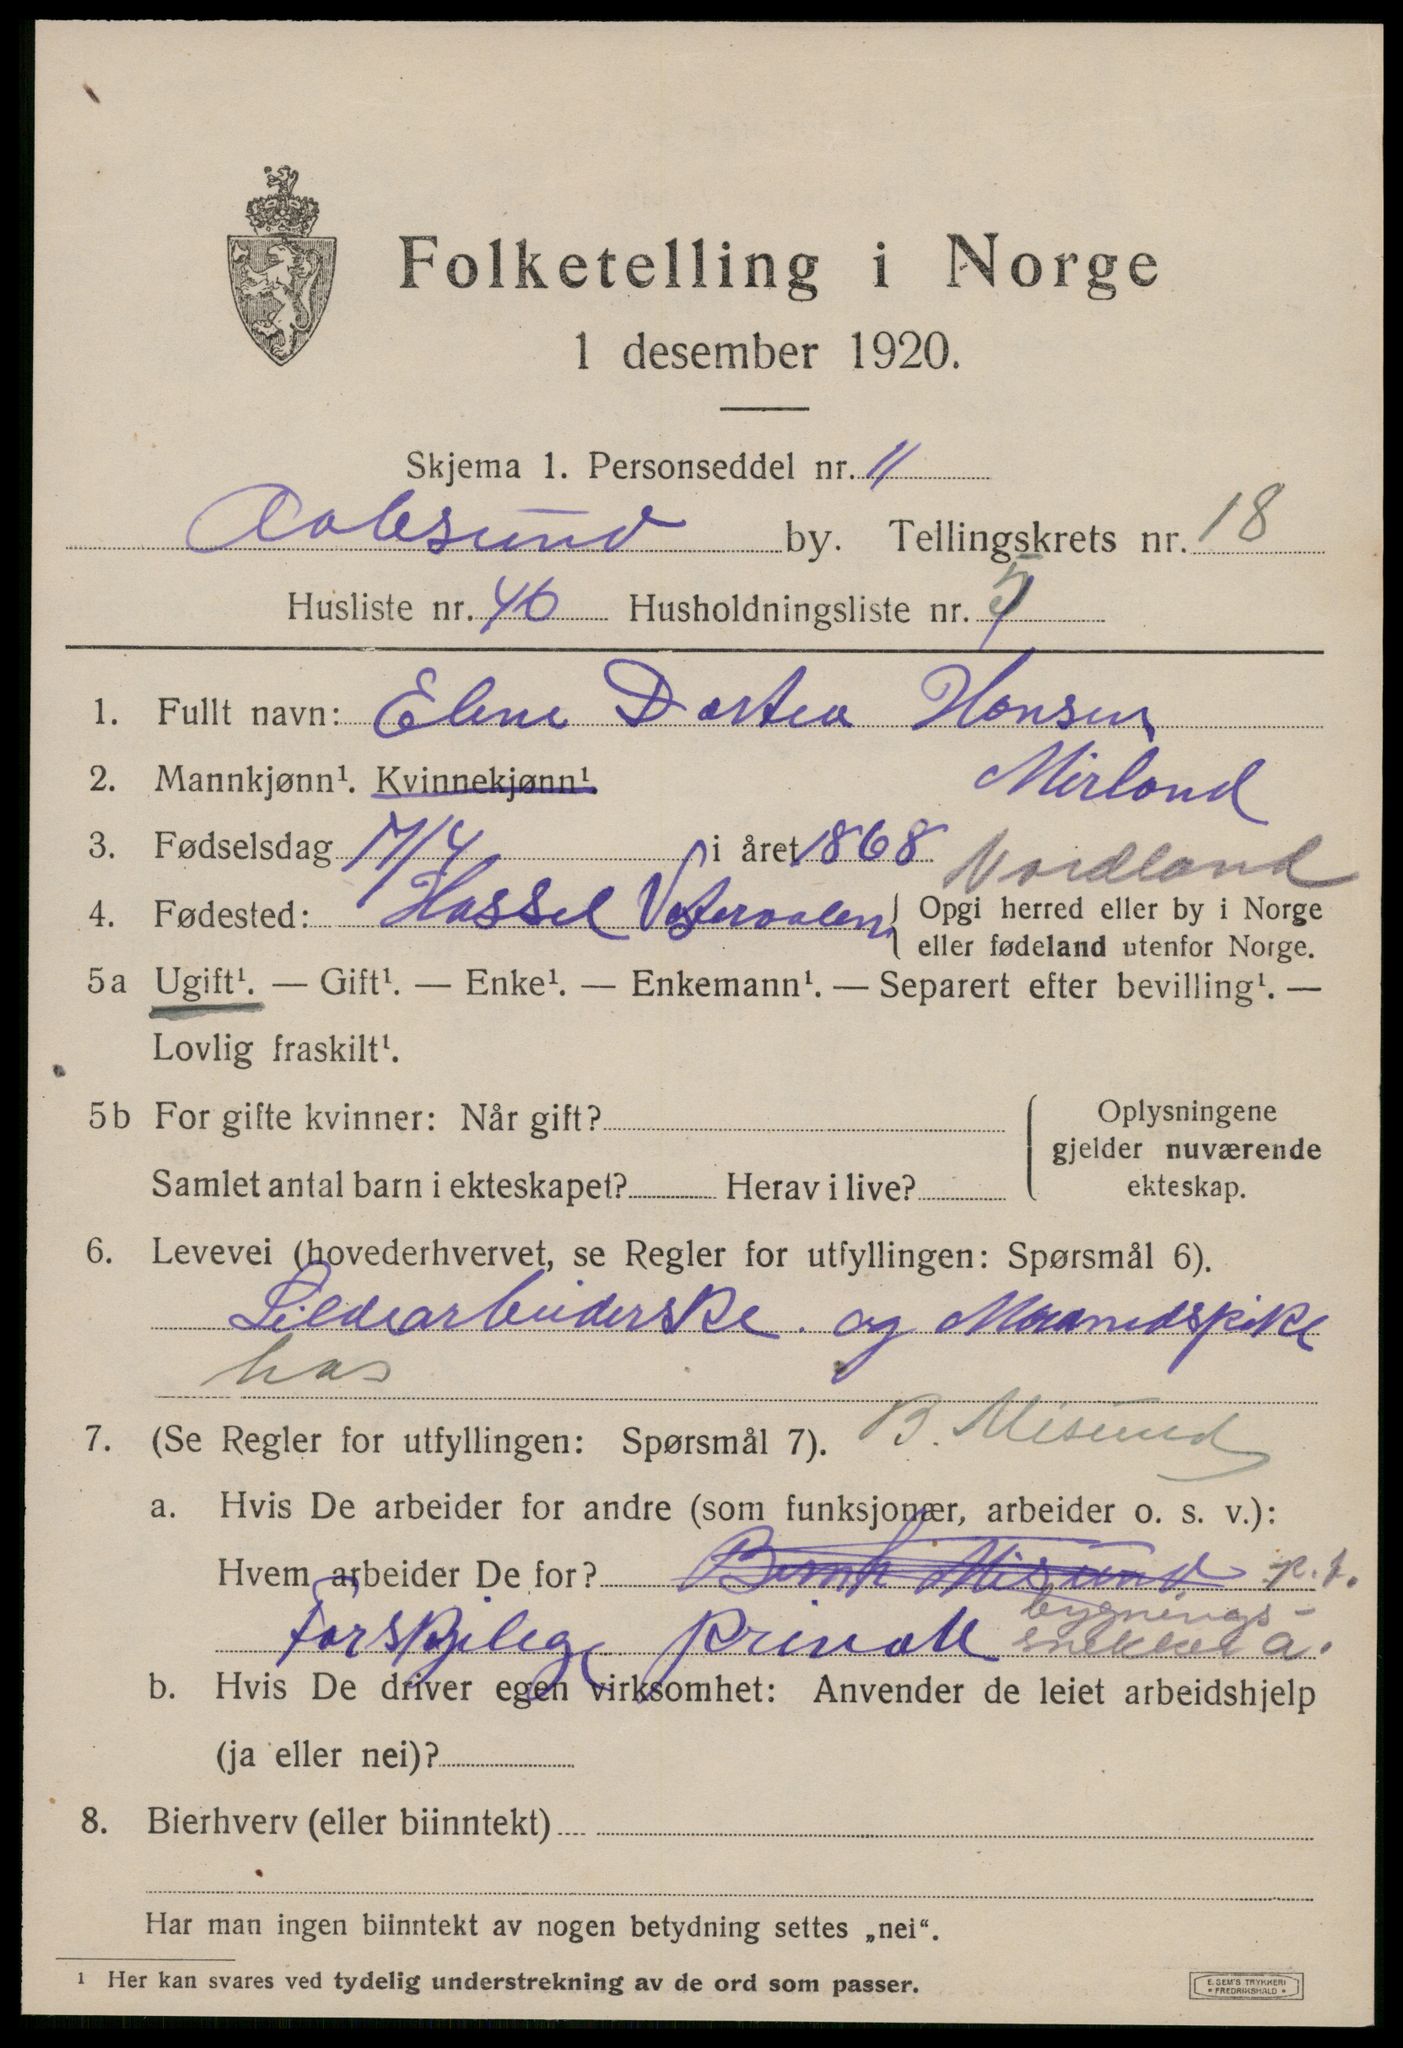 Folketelling i Norge
1 desember 1920.
Skjema 1. Personseddel nr. 11
Aalesund by. Tellingskrets nr. 18
Husliste nr. 46 Husholdningsliste nr. 5
1. Fullt navn: Elene Dortea Hansen
Mirland
2. Mannkjønn¹. Kvinnekjønn¹.
3. Fødselsdag 17/4 i året 1868
Nordland
4. Fødested: Hassel Vesteraalen { Opgi herred eller by i Norge
eller fødeland utenfor Norge.
5a Ugift¹. — Gift¹. — Enke¹. — Enkemann¹. — Separert efter bevilling¹. —
Lovlig fraskilt¹.
5b For gifte kvinner: Når gift?
Samlet antal barn i ekteskapet? Herav i live?
{ Oplysningene
gjelder nuværende
ekteskap.
6. Levevei (hovederhvervet, se Regler for utfyllingen: Spørsmål 6).
Sildearbeiderske og Maanedspike
hos
B. Misund
7. (Se Regler for utfyllingen: Spørsmål 7).
a. Hvis De arbeider for andre (som funksjonær, arbeider o. s. v.):
Hvem arbeider De for? Bernh Misund p.t.
Forskjelige privat bygnings-
snekker a.
b. Hvis De driver egen virksomhet: Anvender de leiet arbeidshjelp
(ja eller nei)?
8. Bierhverv (eller biinntekt)
Har man ingen biinntekt av nogen betydning settes „nei“.
¹ Her kan svares ved tydelig understrekning av de ord som passer.
E. SEM'S TRYKKERI
* FREDRIKSHALD *